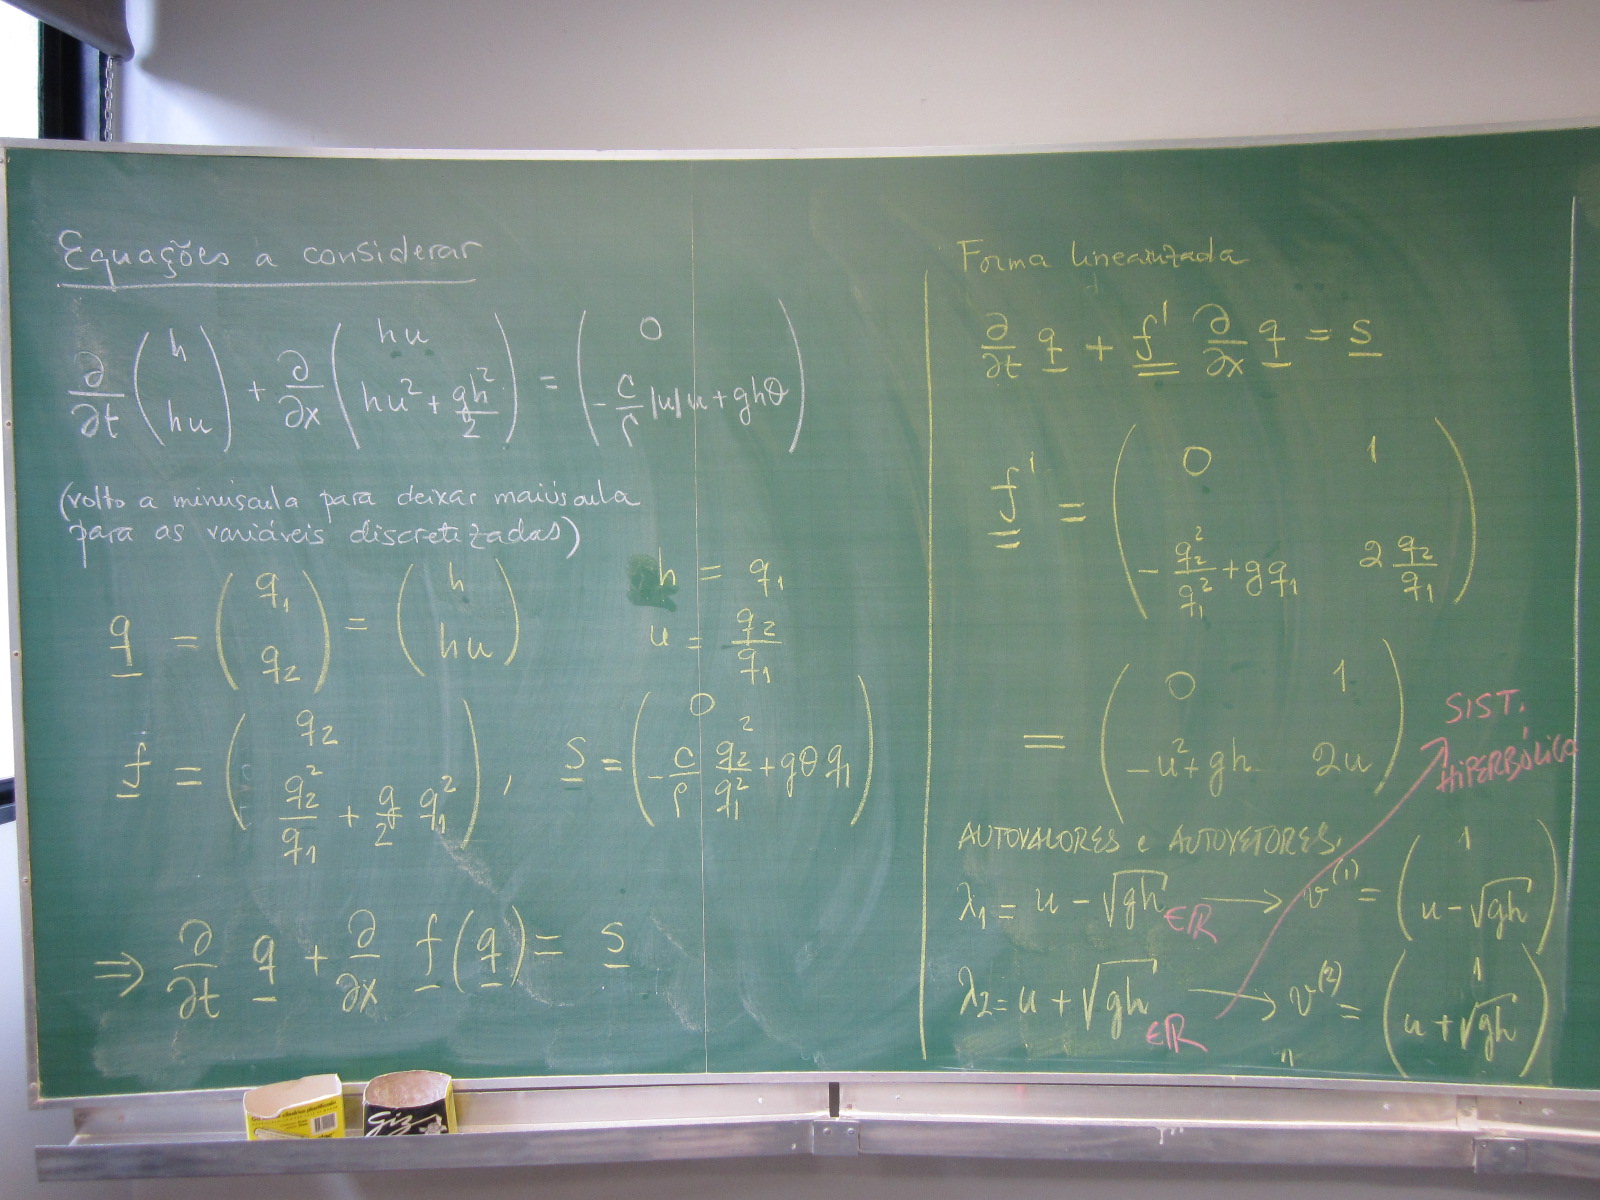 Equações a considerar
∂/∂t (h ; hu) + ∂/∂x (hu ; hu² + gh²/2) = (0 ; -C/ρ |u|u + ghθ)
(volto a minúscula para deixar maiúscula
para as variáveis discretizadas)
q = (q₁ ; q₂) = (h ; hu)
h = q₁
u = q₂/q₁
f = (q₂ ; q₂²/q₁ + g/2 q₁²) , S = (0 ; -C/ρ q₂²/q₁² + gθq₁)
⇒ ∂/∂t q + ∂/∂x f(q) = S
Forma linearizada
∂/∂t q + f' ∂/∂x q = S
f' = (0 1 ; -q₂²/q₁² + gq₁ 2 q₂/q₁)
= (0 1 ; -u² + gh 2u)
SIST.
HIPERBÓLICO
AUTOVALORES e AUTOVETORES.
λ₁ = u - √gh ∈ℝ → v⁽¹⁾ = (1 ; u - √gh)
λ₂ = u + √gh ∈ℝ → v⁽²⁾ = (1 ; u + √gh)
Giz